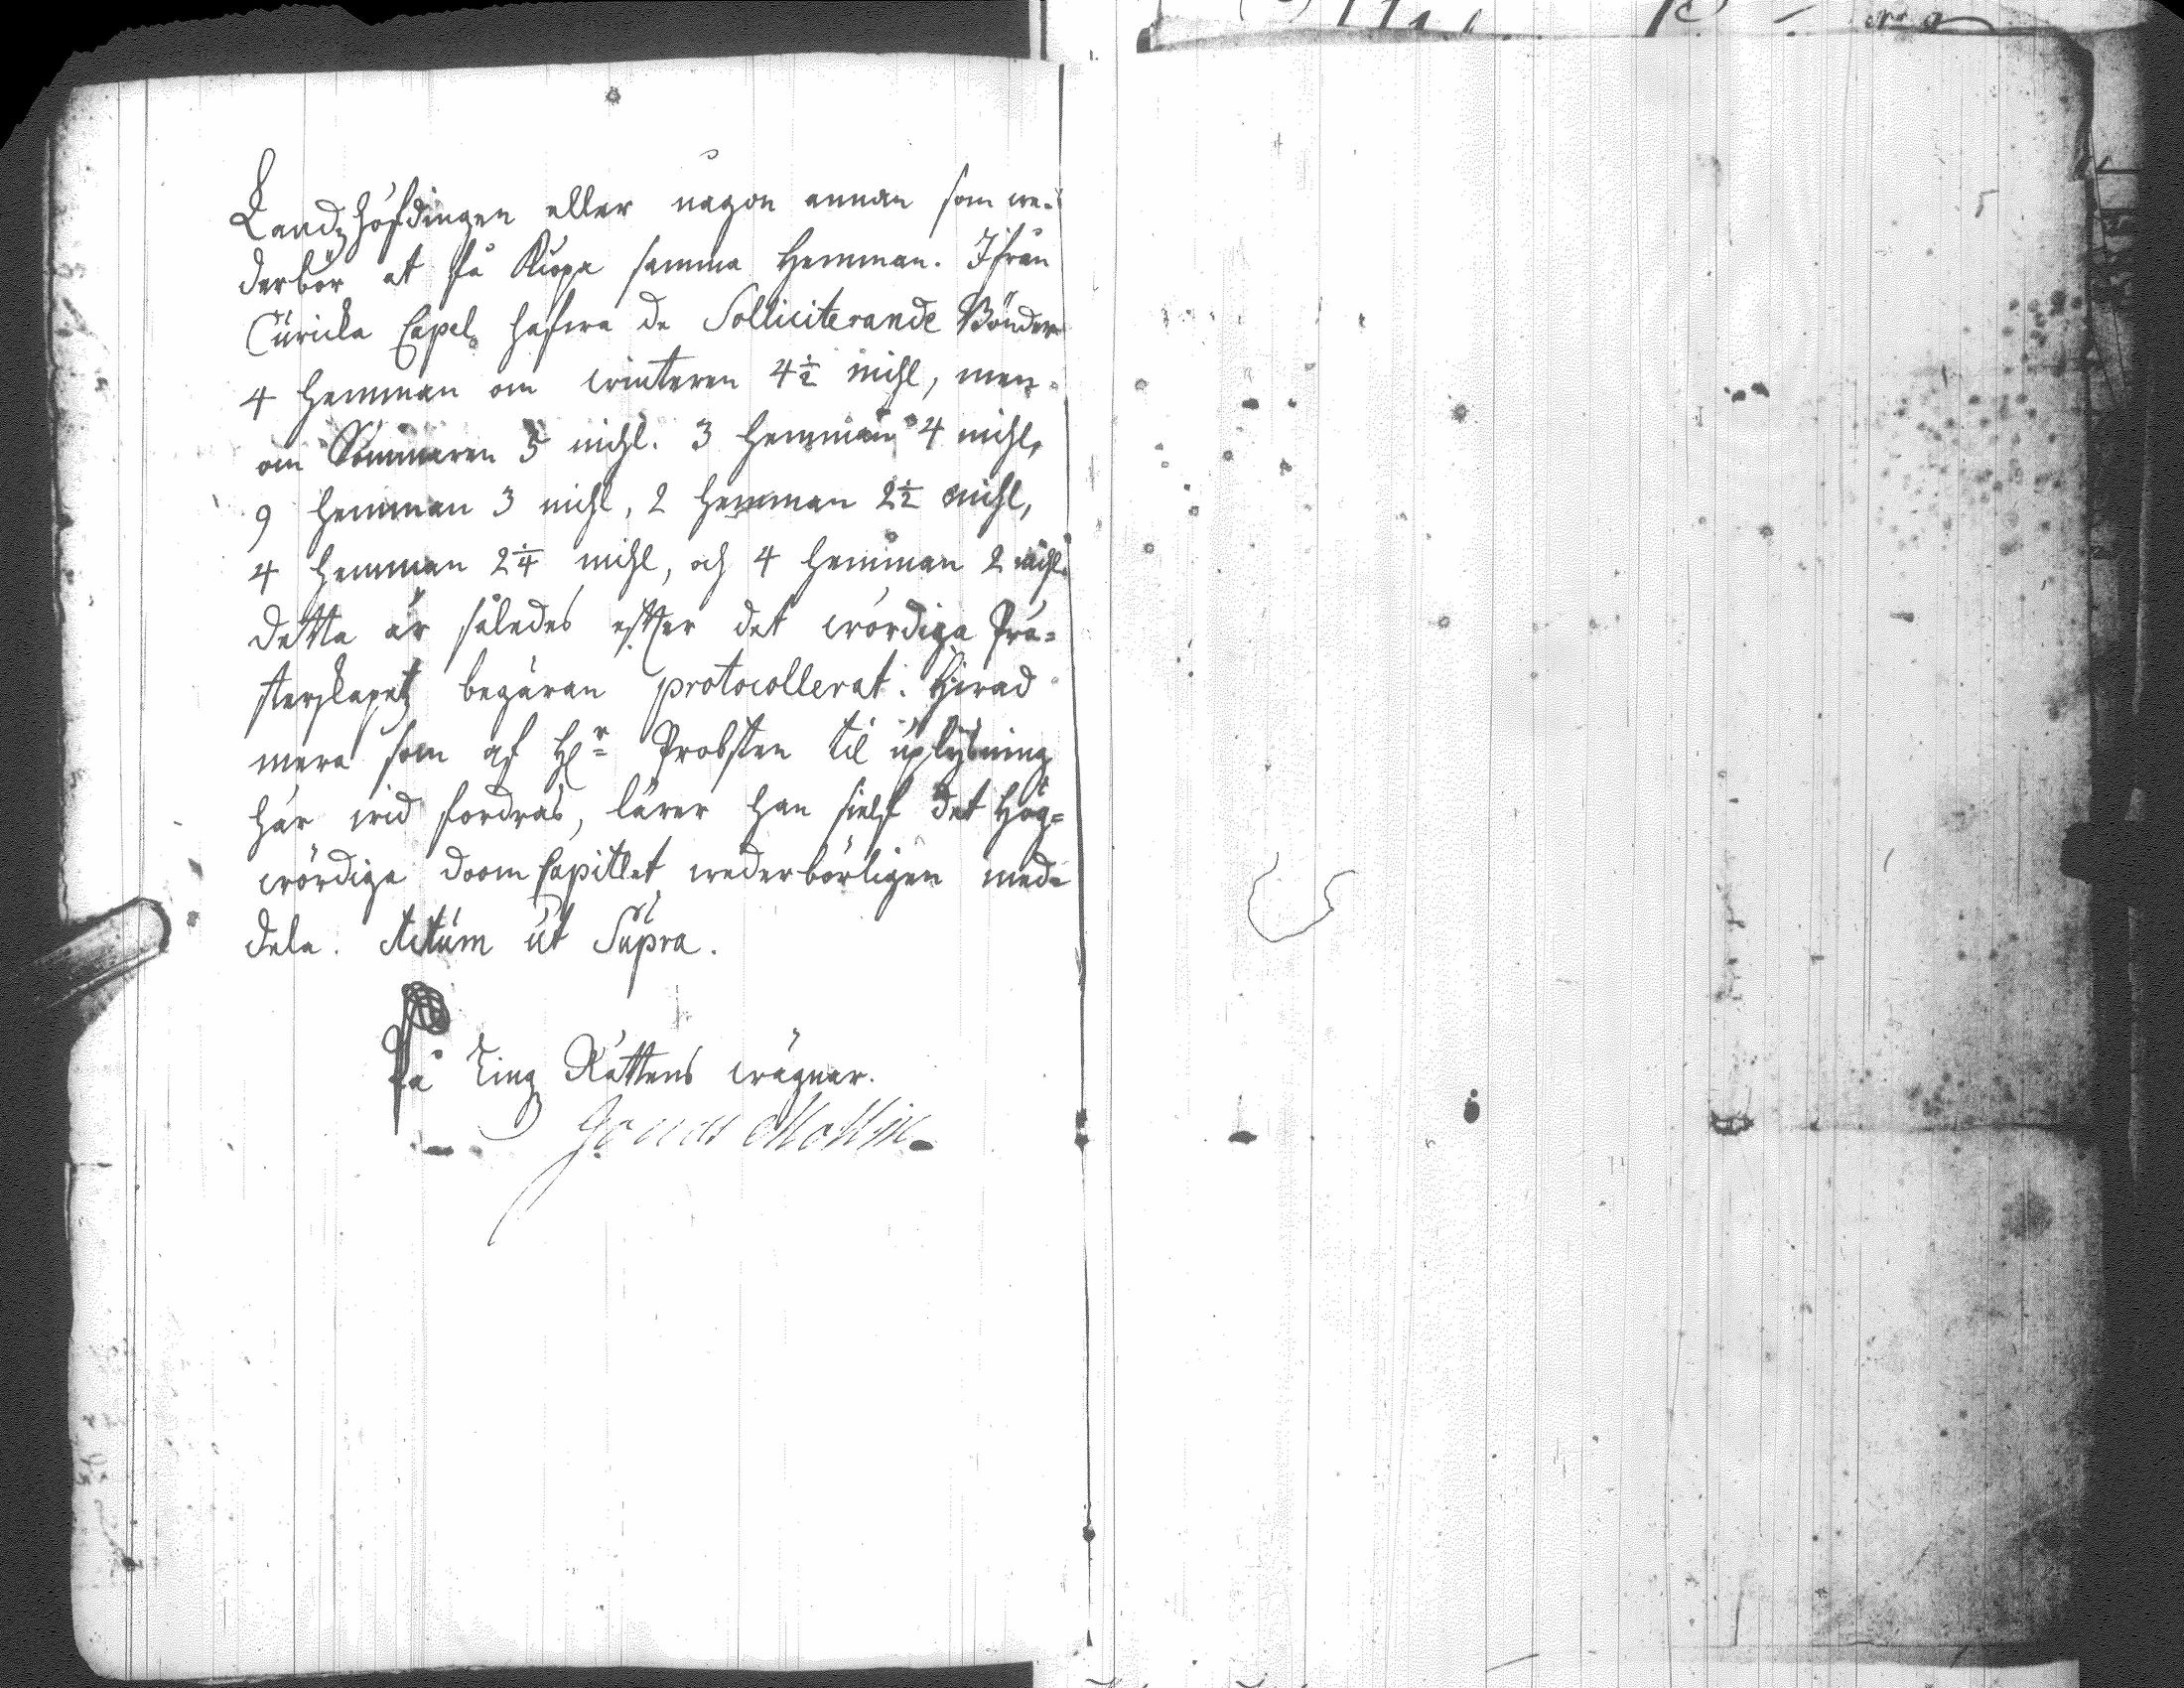 Landzhöfdingen eller någon annan som we-
derbör at få Kiöpa samma Hemman. Ifrån
Curicka Capel hafwa de Solliciterande Bönder
4 Hemman om winteren 4½ mihl, men
om Sommaren 5 mihl. 3 Hemman 4 mihl,
9 Hemman 3 mihl, 2 Hemman 2½ mihl,
4 Hemman 2¼ mihl, och 4 Hemman 2 mihl.
detta är således effter det wördiga Prä-
sterskapetz begäran protocollerat. Hwad
mera som af Hr Probsten til uplysning
här wid fordras, lärer han sielf det Hög-
wördiga doom Capitlet wederbörligen med-
dela. Actum ut Supra.
På Ting Rättens wägnar.
Jonas Mollin